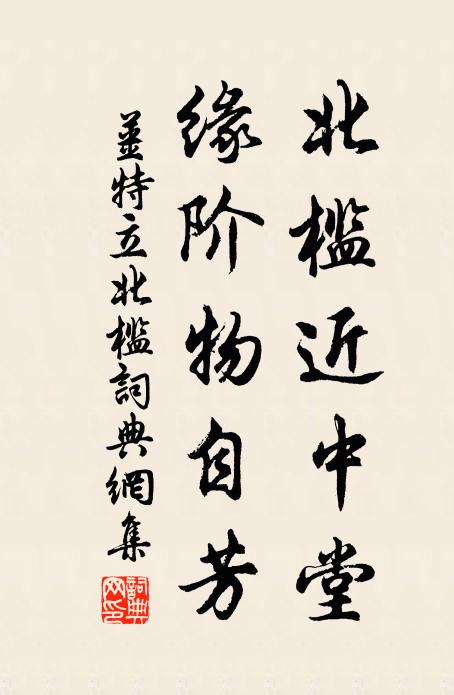 北槛近中堂
缘阶物自芳
姜特立北槛詞典網集
詞典網印